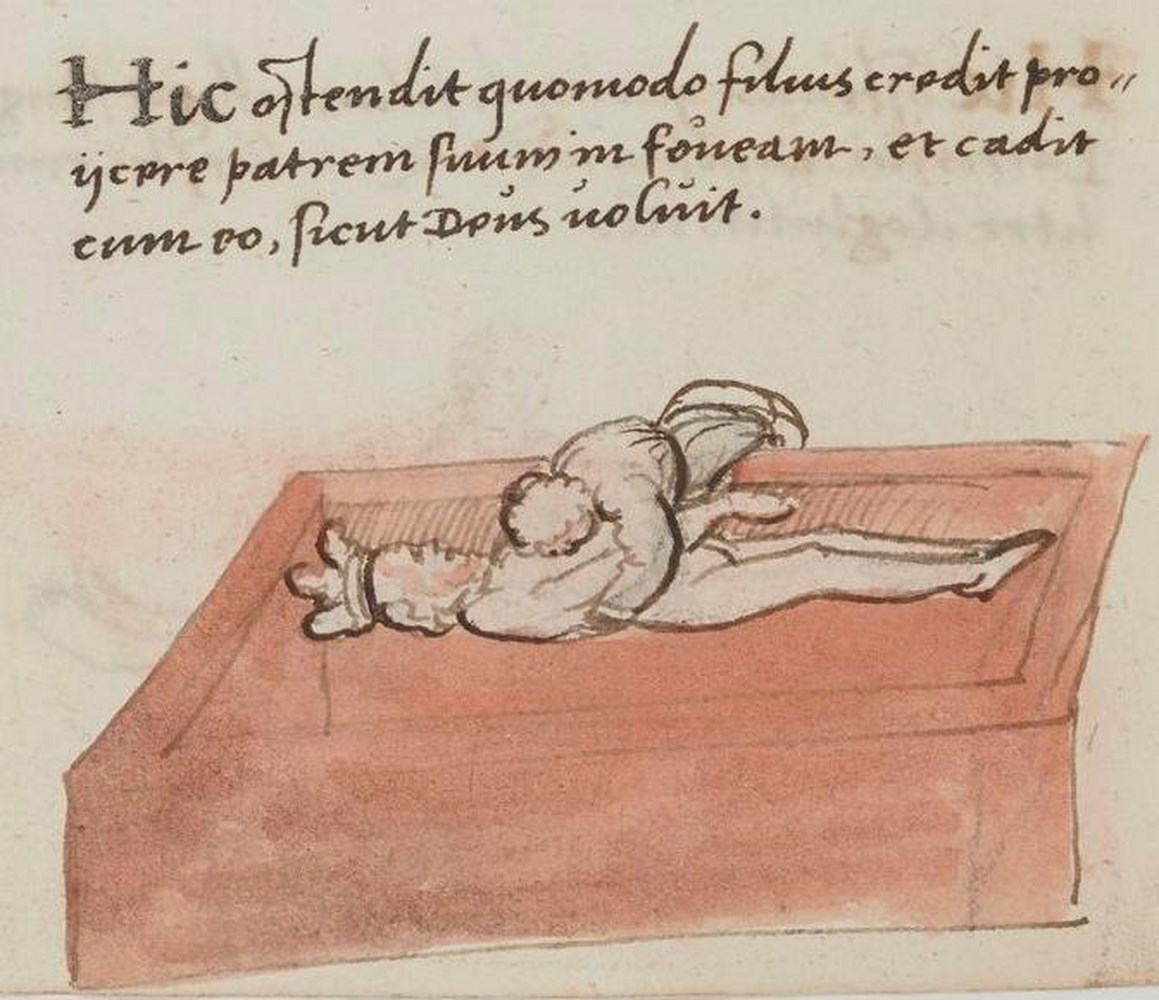 Hic ostendit quomodo filius credit pro〃
ijcere patrem suum in foueam, et cadit
cum eo, sicut Deus uoluit.